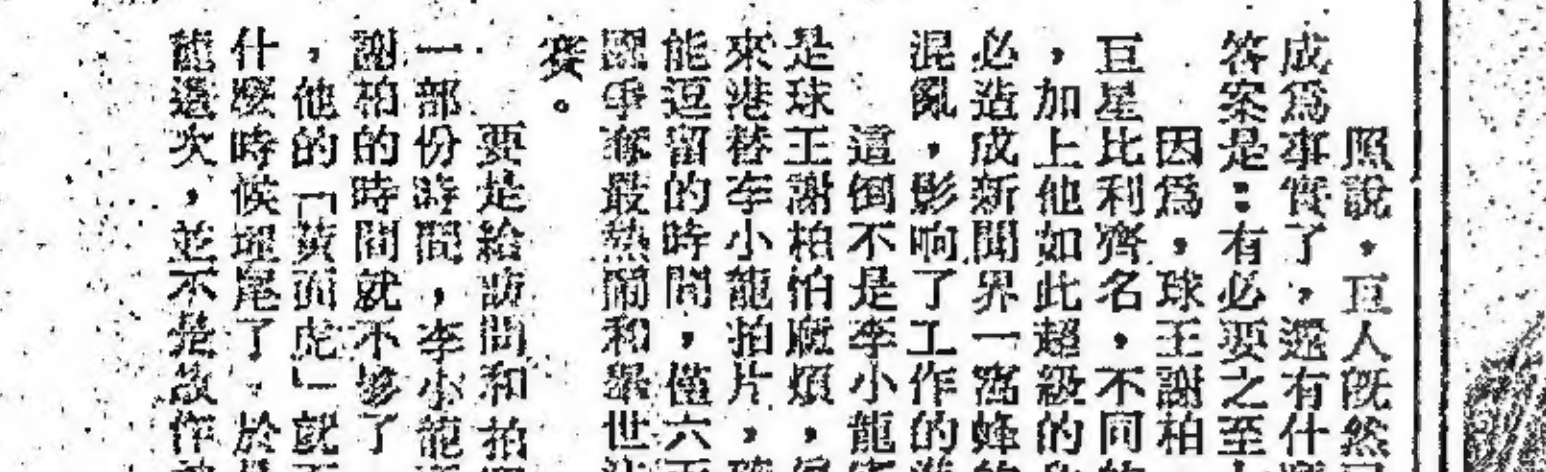 照說，巨人旣然
成爲事實了，還有什
答案是：有必要之至
因爲，球王謝柏
巨星比利齊名，不同的
，加上他如此超級的
必造成新聞界一窩蜂的
混亂，影响了工作的進
這倒不是李小龍
是球王謝柏怕麻煩，
來港替李小龍拍片，
能逗留的時間，僅六
國爭奪最熱鬧和舉世
賽。
要是給訪問和拍
一部份時間，李小龍
謝柏的時間就不够了
，他的「黃面虎」就
什麼時候埋尾了，於是
龍這次，並不是故作